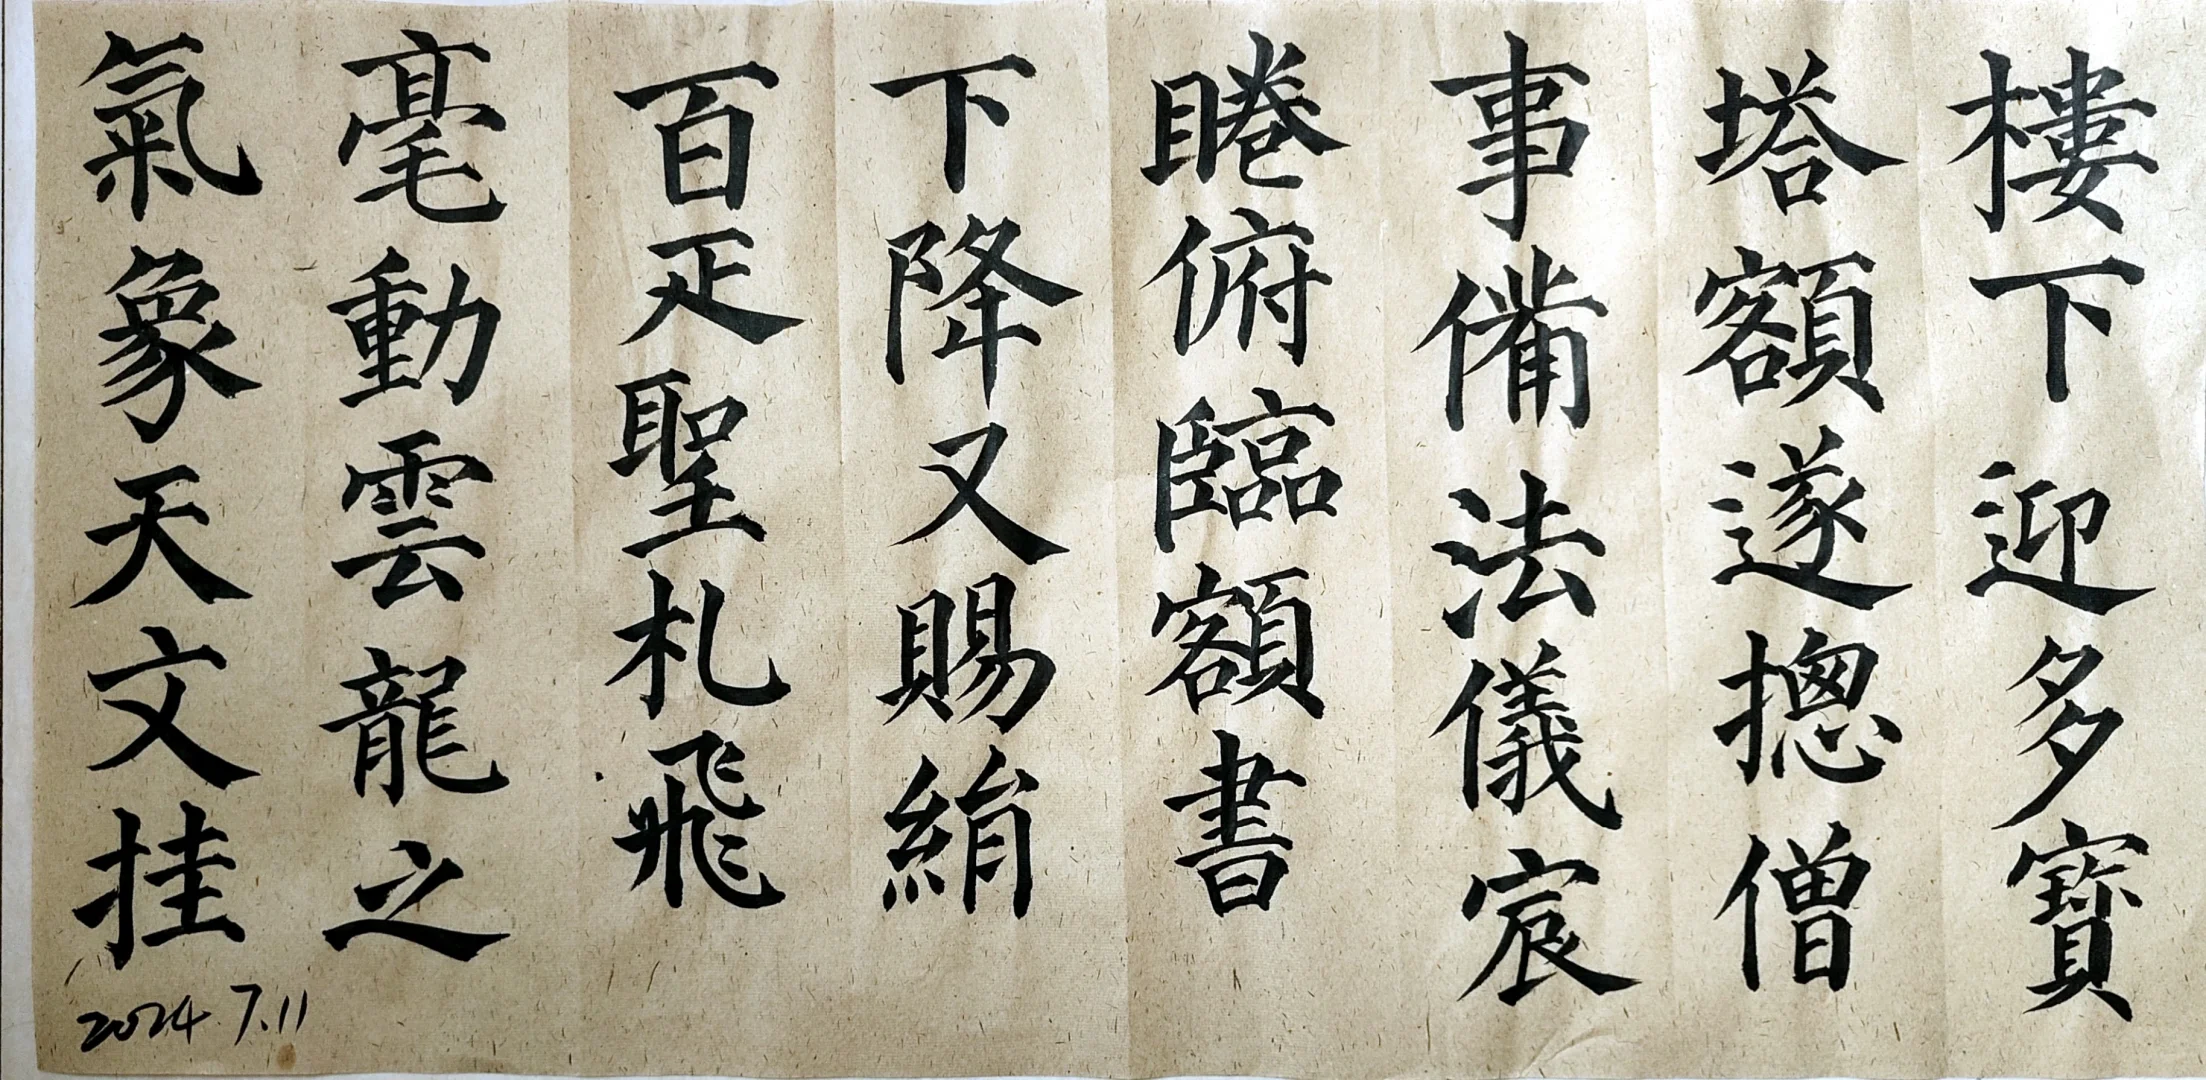 樓下迎多寶
塔額遂摠僧
事備法儀宸
睠俯臨額書
下降又賜絹
百疋聖札飛
毫動雲龍之
氣象天文挂
2024.7.11